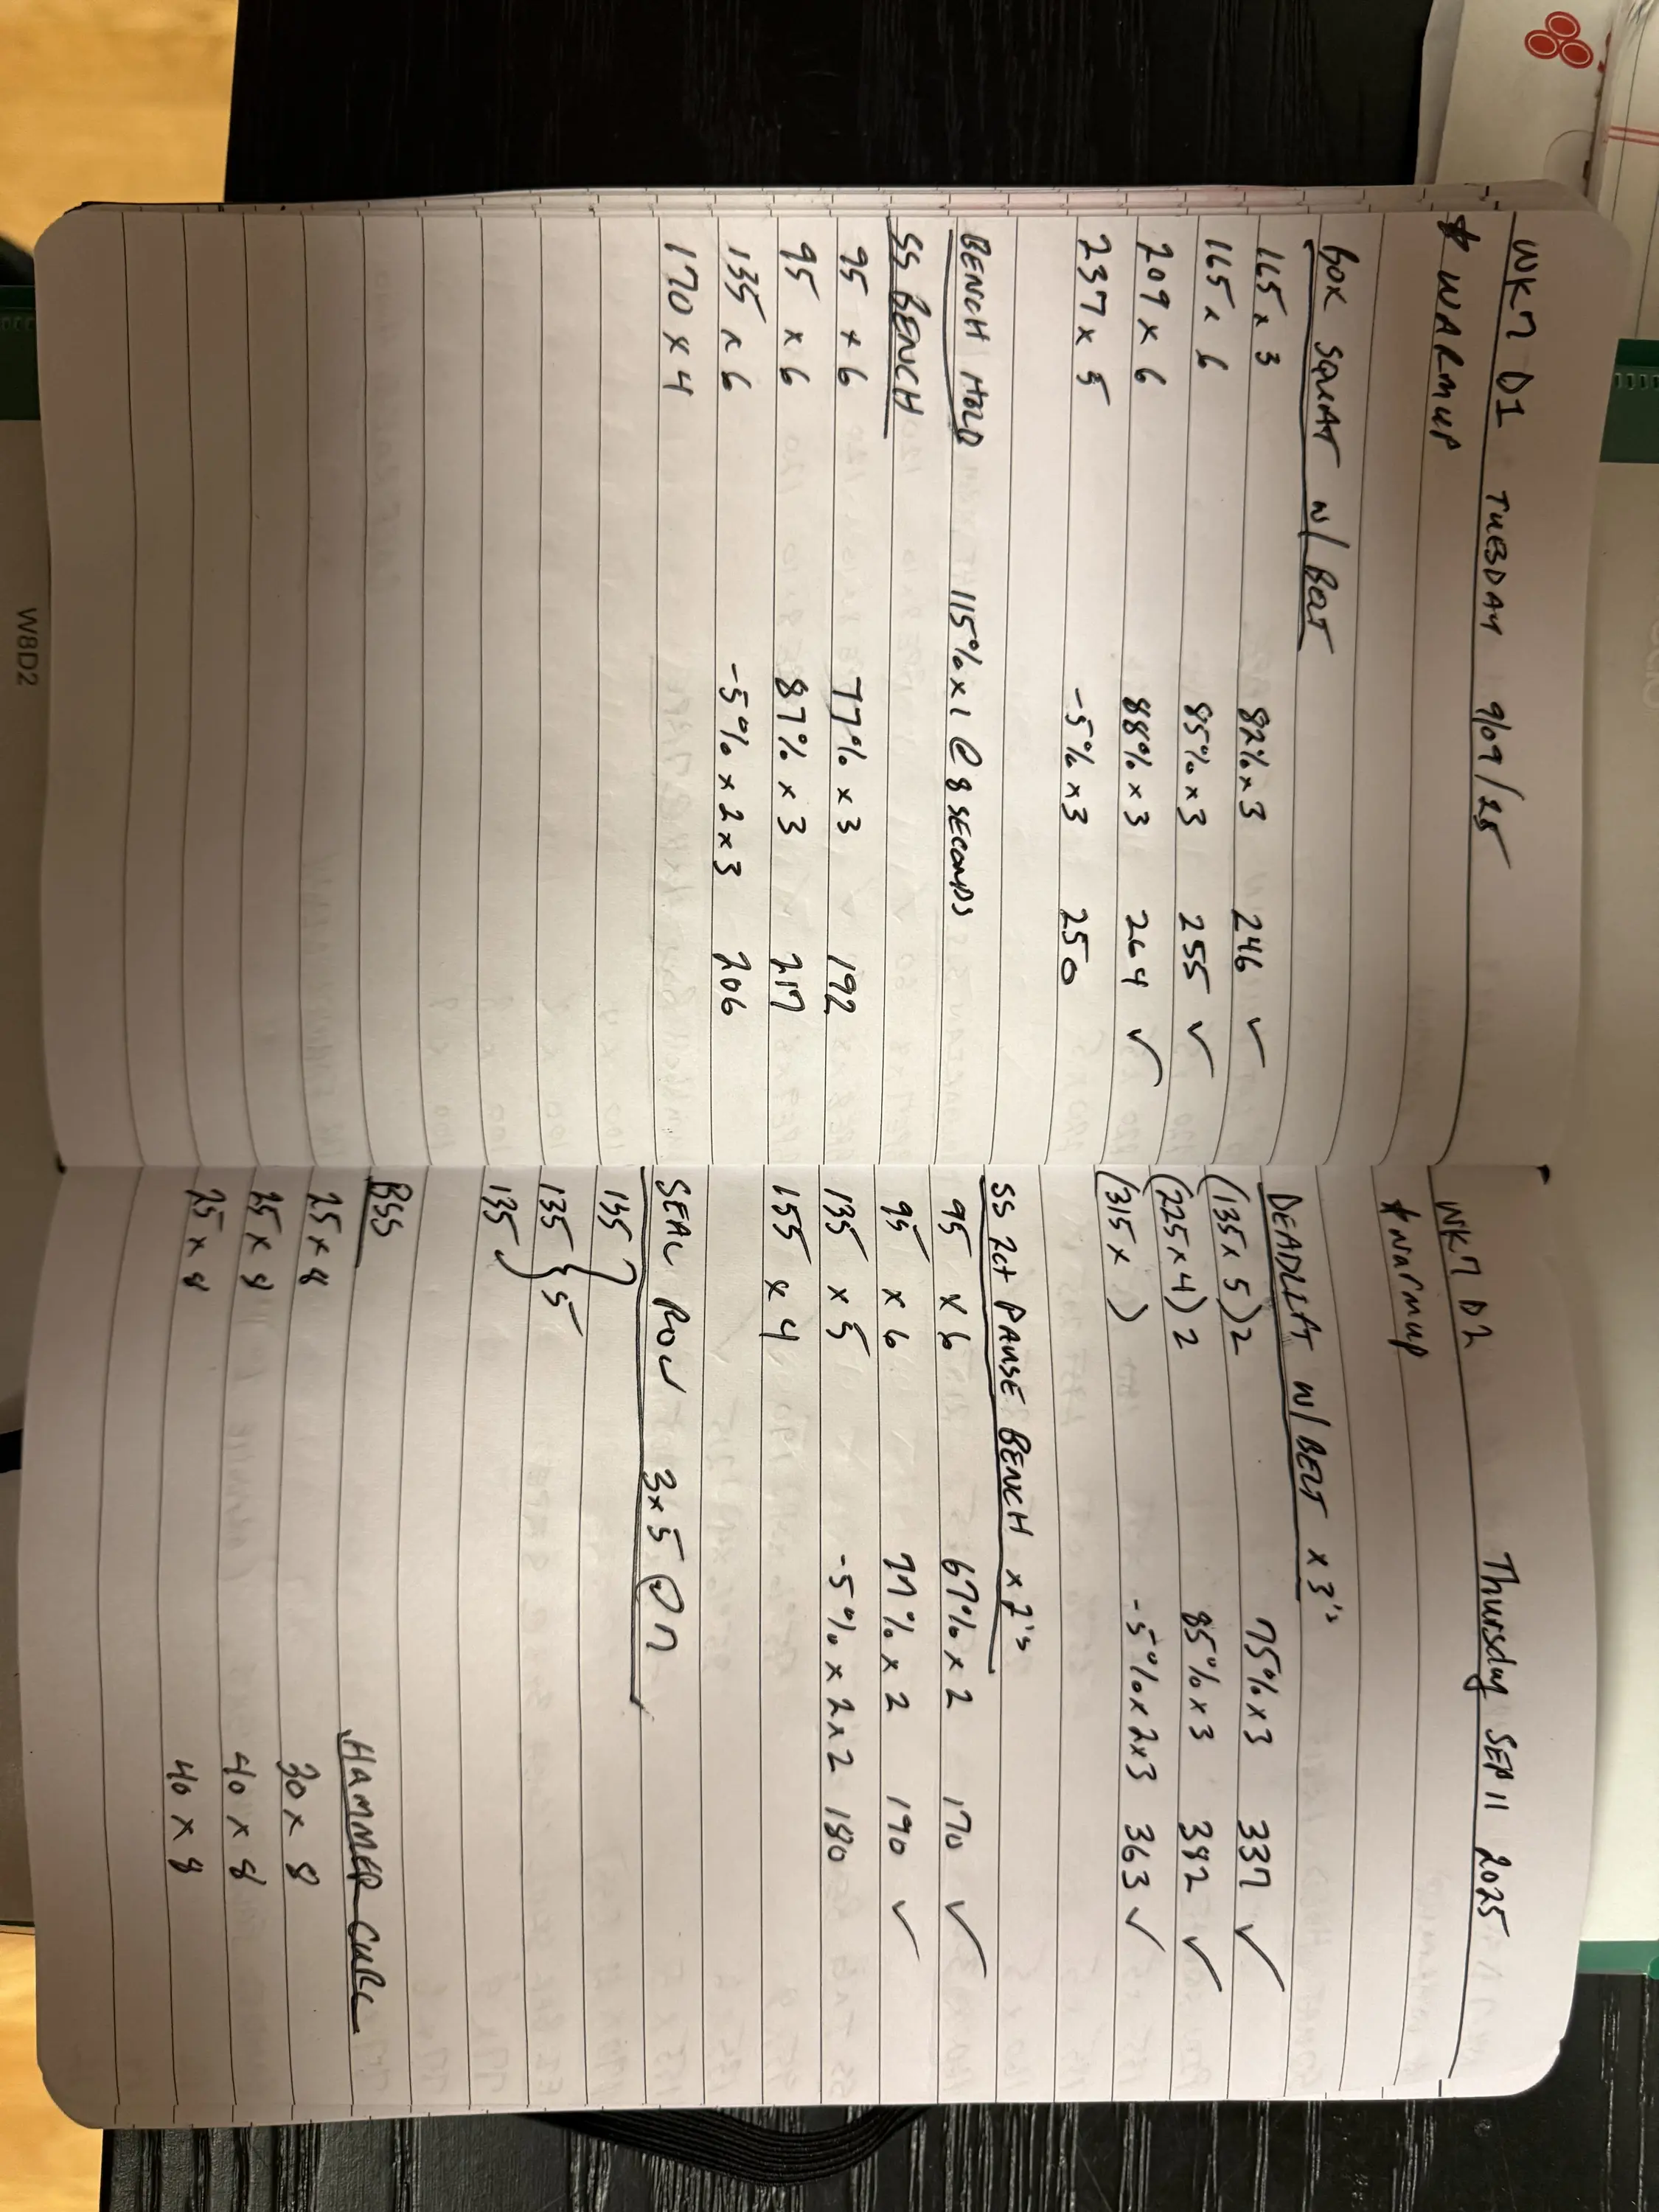 WK7 D1 TUESDAY 9/09/25
* WARMUP
BOX SQUAT W/ BELT
165 x 3 82% x 3 246 ✓
165 x 6 85% x 3 255 ✓
209 x 6 88% x 3 264 ✓
237 x 5 -5% x 3 250
BENCH HOLD 115% x 1 @ 8 SECONDS
SS BENCH
95 x 6 77% x 3 192
95 x 6 87% x 3 217
135 x 6 -5% x 2 x 3 206
170 x 4
WK7 D2 Thursday SEP 11 2025
* warmup
DEADLIFT W/ BELT x 3's
(135 x 5) 2 75% x 3 337 ✓
(225 x 4) 2 85% x 3 382 ✓
(315 x ) -5% x 2 x 3 363 ✓
SS 2ct PAUSE BENCH x 2's
95 x 6 67% x 2 170 ✓
95 x 6 77% x 2 190 ✓
135 x 5 -5% x 2 x 2 180
155 x 4
SEAL ROW 3 x 5 @ 7
135
135 } 5
135
BSS HAMMER CURL
25 x 8 30 x 8
25 x 8 40 x 8
25 x 8 40 x 8
W8D2